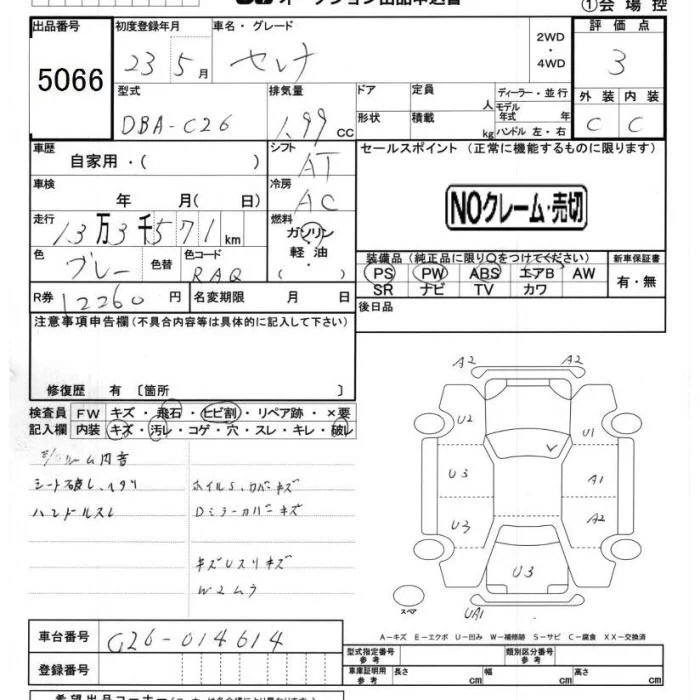 オークション出品申込書
①会場控
出品番号 初度登録年月 車名・グレード 評価点
5066 23年5月 セレナ 2WD・4WD 3
型式 排気量 ドア 定員 人 ディーラー・並行
DBA-C26 1.99cc 形状 積載 kg モデル年式 年 ハンドル 左・右
外装 内装
C C
車歴 自家用・( ) シフト AT セールスポイント (正常に機能するものに限ります)
車検 年 月( 日) 冷房 AC
NOクレーム・売切
走行 13万3千571km 燃料 ガソリン 軽油 ・( )
色 グレー 色替 色コード RAQ
装備品 (純正品に限り○をつけてください) 新車保証書
PS PW ABS エアB AW 有・無
SR ナビ TV カワ
R券 12260円 名変期限 月 日
後日品
注意事項申告欄 (不具合内容等は具体的に記入して下さい)
修復歴 有 〔箇所 〕
検査員 FW キズ・飛石・ヒビ割・リペア跡・×要
記入欄 内装 キズ・汚レ・コゲ・穴・スレ・キレ・破レ
ルーム内音
シート破レ、ヘタリ ホイルS、カバーキズ
ハンドルスレ Dミラーカバーキズ
キズUスリキズ
W2ムラ
A2 A2
U2 U1
U3 A1
U3 A2
U3
スペア UA1
A-キズ E-エクボ U-凹み W-補修跡 S-サビ C-腐食 XX-交換済
車台番号 C26-014614
登録番号
型式指定番号 参考 類別区分番号 参考
車庫証明用 参考 長さ cm 幅 cm 高さ cm
希望出品コーナー